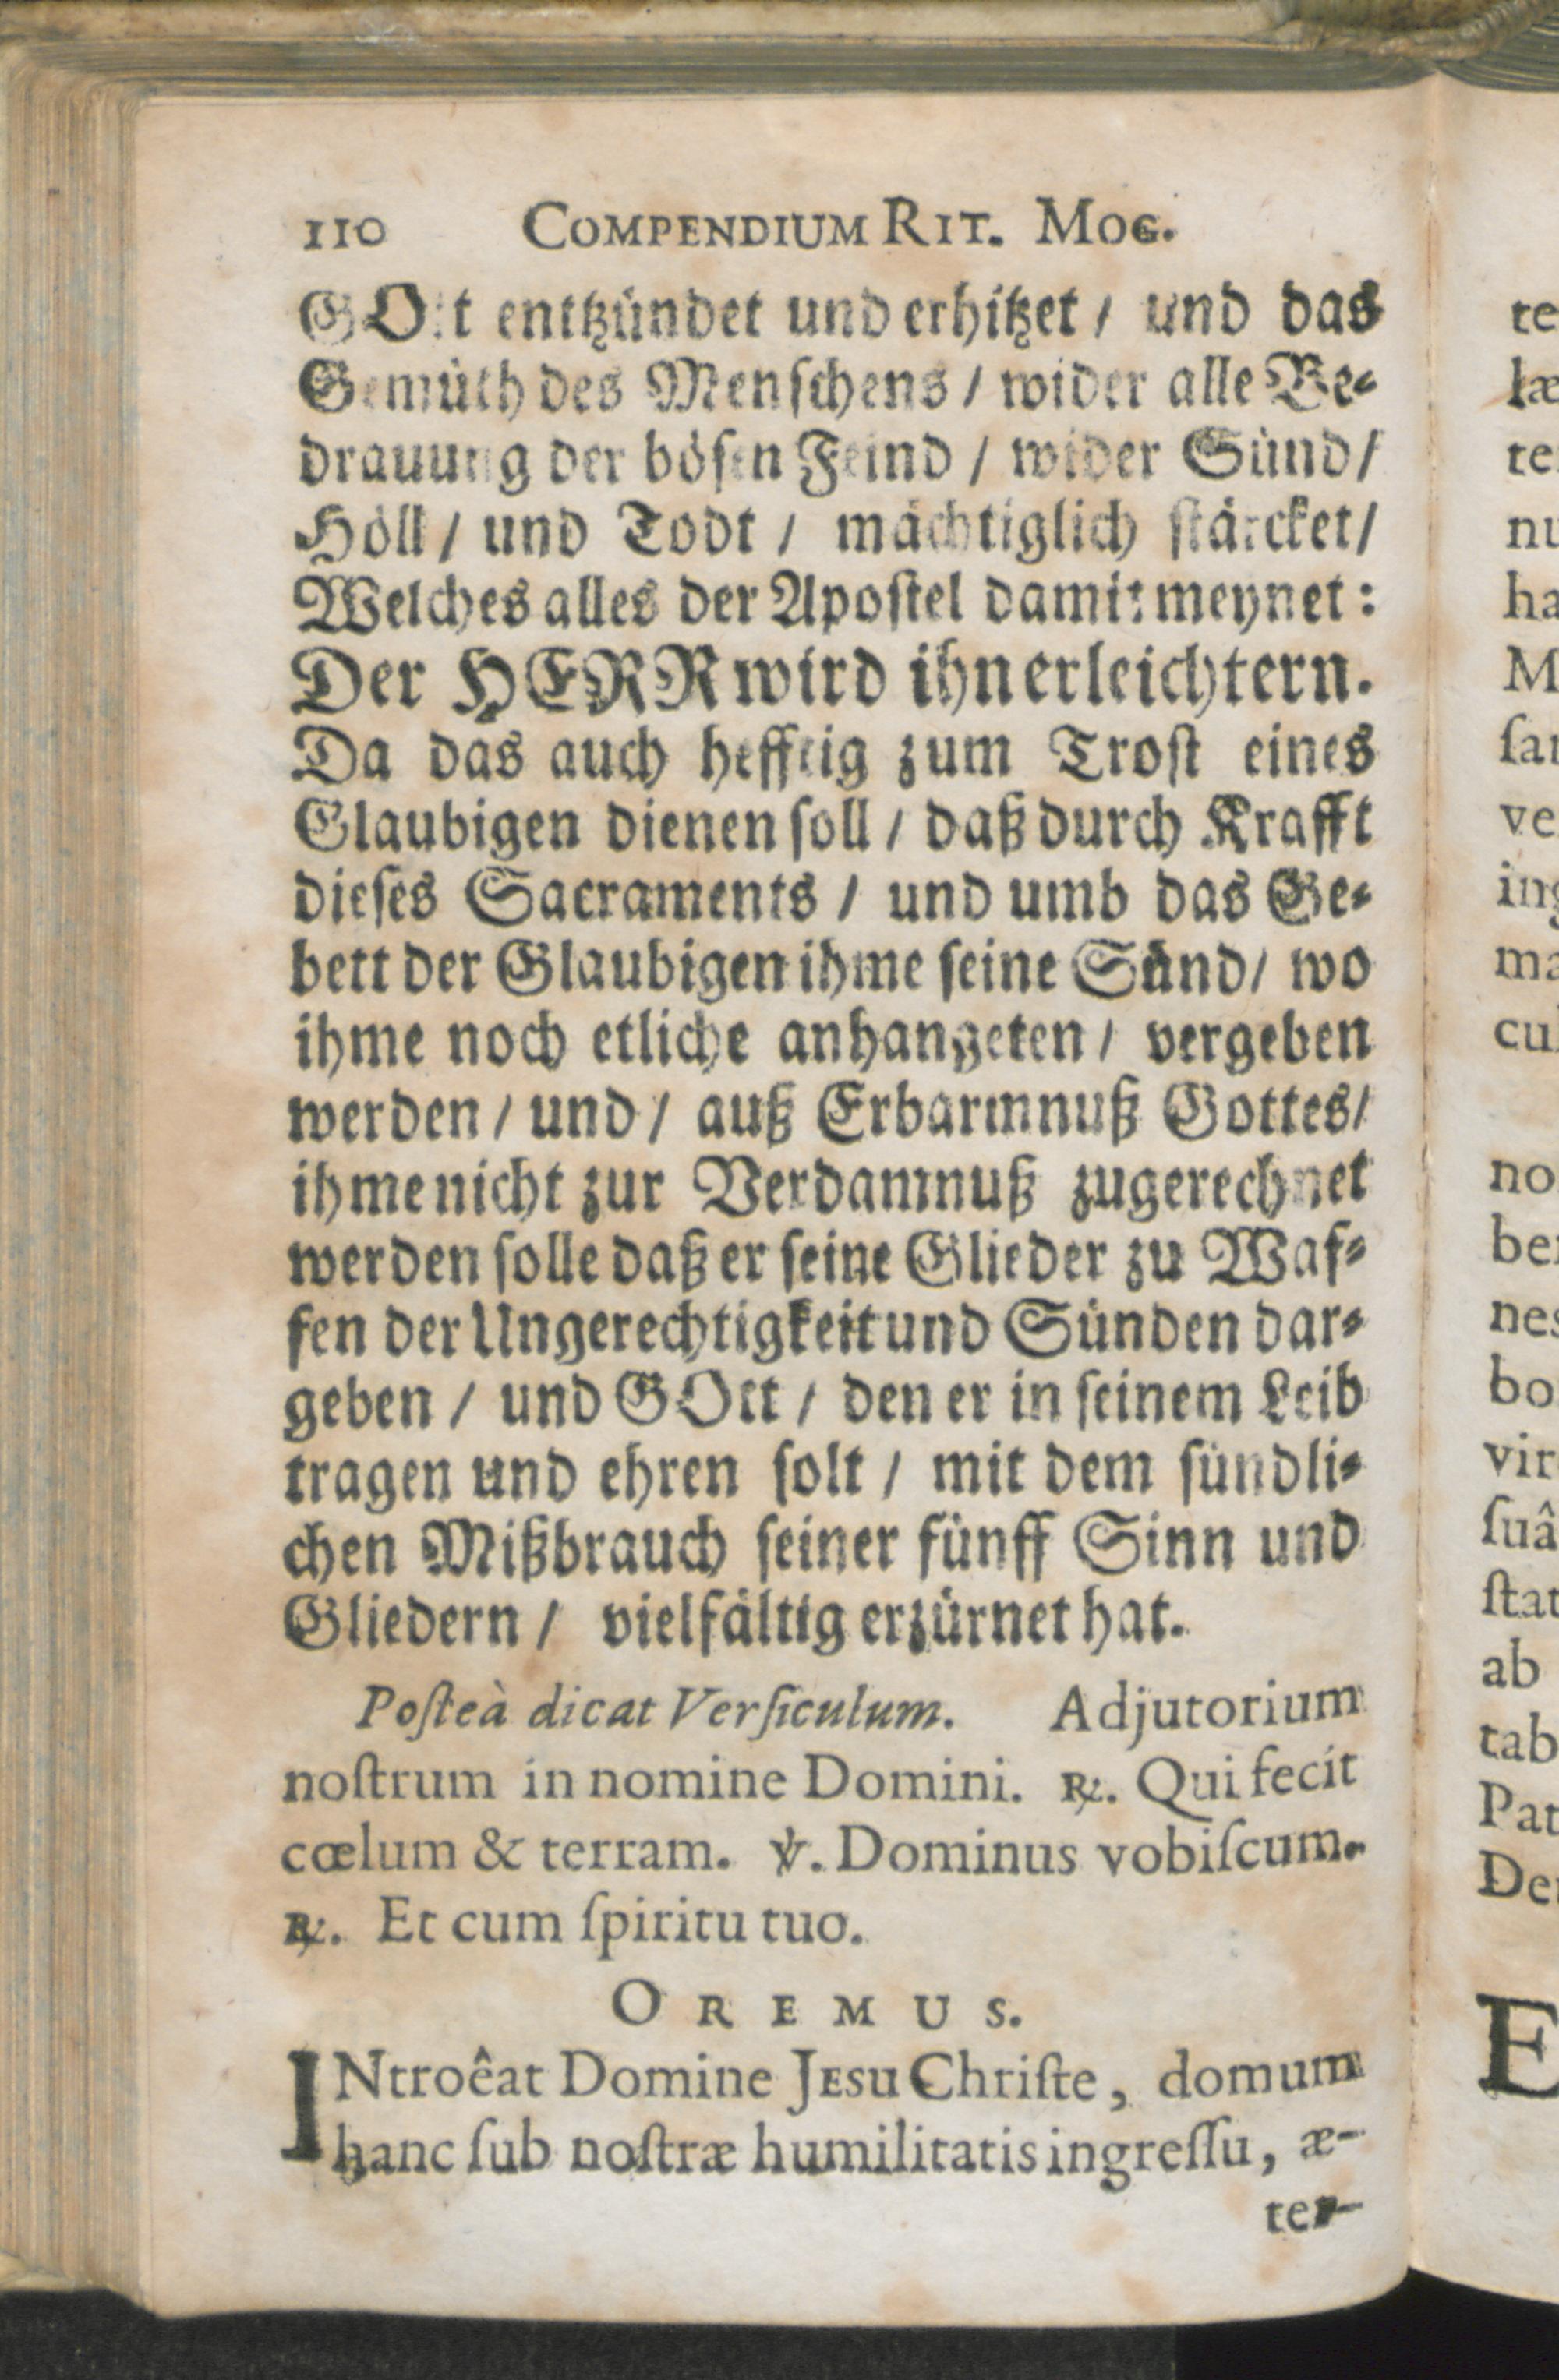 110 COMPENDIUM RIT. MOG.
GOtt entzündet und erhitzet / und das
Gemüth des Menschens / wider alle Be-
drauung der bösen Feind / wider Sünd /
Höll / und Todt / mächtiglich stärcket /
Welches alles der Apostel damit meynet:
Der HERR wird ihn erleichtern.
Da das auch hefftig zum Trost eines
Glaubigen dienen soll / daß durch Krafft
dieses Sacraments / und umb das Ge-
bett der Glaubigen ihme seine Sünd / wo
ihme noch etliche anhangeten / vergeben
werden / und / auß Erbarmnuß Gottes /
ihme nicht zur Verdamnuß zugerechnet
werden solle daß er seine Glieder zu Waf-
fen der Ungerechtigkeit und Sünden dar-
geben / und GOtt / den er in seinem Leib
tragen und ehren solt / mit dem sündli-
chen Mißbrauch seiner fünff Sinn und
Gliedern / vielfältig erzürnet hat.
Poſteà dicat Verſiculum. Adjutorium
noſtrum in nomine Domini. ℟. Qui fecit
cœlum & terram. ℣. Dominus vobiſcum.
℟. Et cum ſpiritu tuo.
OREMUS.
INtroêat Domine JESU Chriſte, domum
hanc ſub noſtræ humilitatis ingreſſu, æ-
ter-
te
læ
te
nu
ha
M
ſan
ve
ing
ma
cul
no
ber
nes
bo
vir
ſuâ
ſtat
ab
tab
Pat
De
E